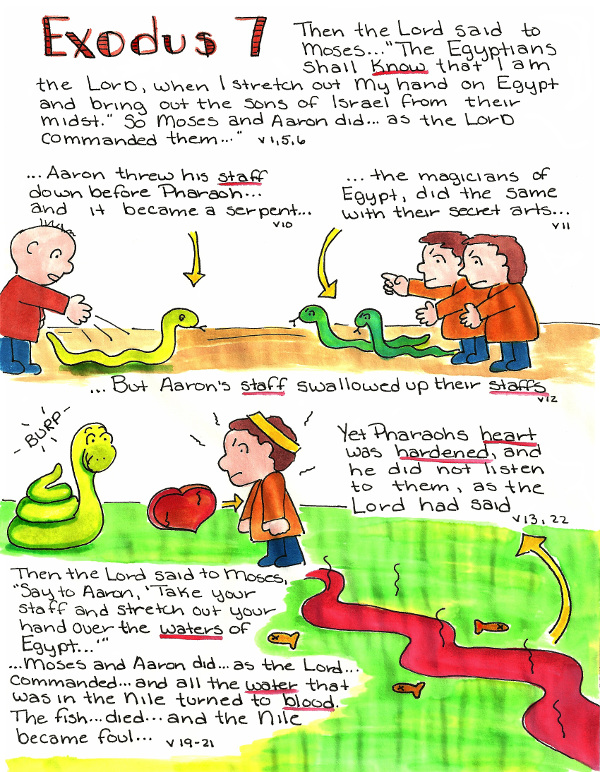 Exodus 7
Then the Lord said to
Moses... "The Egyptians
shall know that I am
the Lord, when I stretch out My hand on Egypt
and bring out the sons of Israel from their
midst." So Moses and Aaron did... as the Lord
commanded them..." v1,5,6
...Aaron threw his staff
down before Pharaoh...
and it became a serpent...
v10
...the magicians of
Egypt, did the same
with their secret arts...
v11
...But Aaron's staff swallowed up their staffs
v12
BURP
Yet Pharaohs heart
was hardened, and
he did not listen
to them, as the
Lord had said
v13,22
Then the Lord said to Moses,
"Say to Aaron, 'Take your
staff and stretch out your
hand over the waters of
Egypt...'"
...Moses and Aaron did... as the Lord...
commanded... and all the water that
was in the Nile turned to blood.
The fish... died... and the Nile
became foul... v19-21